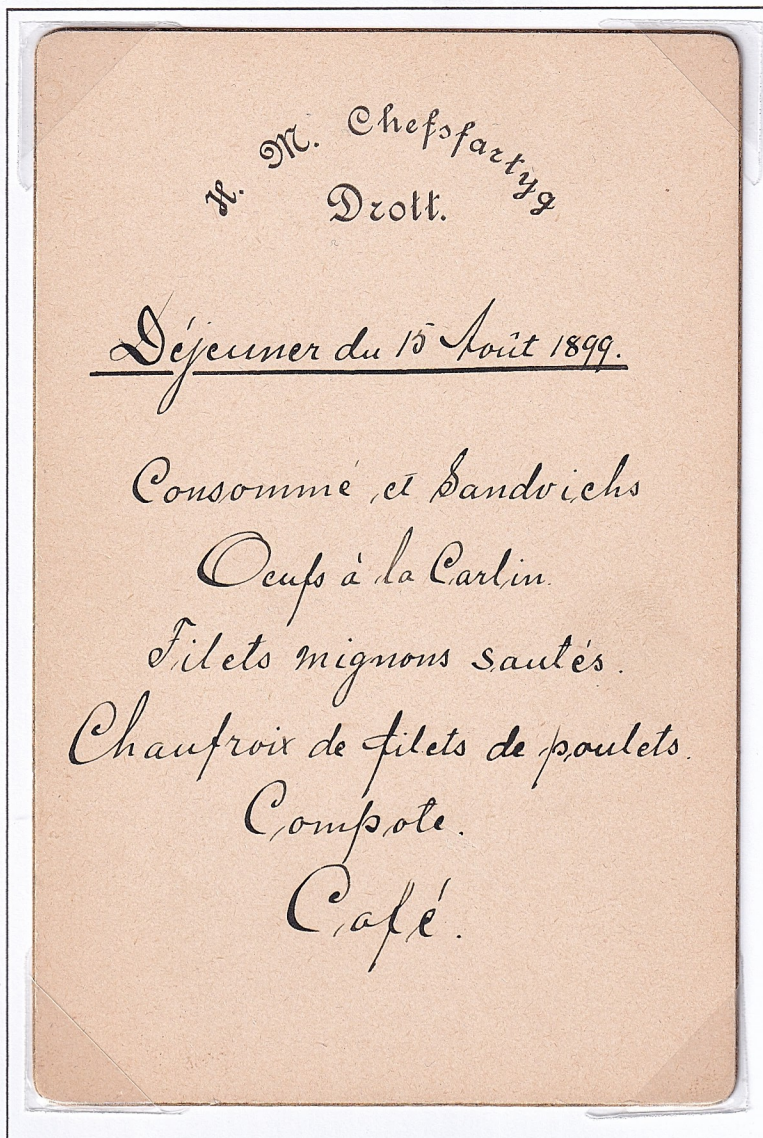 H. M. Chefsfartyg
Drott.
Déjeuner du 15 Août 1899.
Consommé et Sandvichs
Oeufs à la Carlin.
Filets mignons sautés.
Chaufroix de filets de poulets.
Compote.
Café.